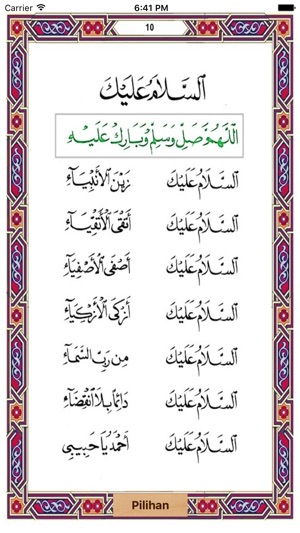 Carrier 6:41 PM
10
اَلسَّلَامُ عَلَيْكَ
اَللّٰهُمَّ صَلِّ وَسَلِّمْ وَبَارِكْ عَلَيْهِ
اَلسَّلَامُ عَلَيْكَ زَيْنَ الْأَنْبِيَآءِ
اَلسَّلَامُ عَلَيْكَ أَتْقَى الْأَتْقِيَآءِ
اَلسَّلَامُ عَلَيْكَ أَصْفَى الْأَصْفِيَآءِ
اَلسَّلَامُ عَلَيْكَ أَزْكَى الْأَزْكِيَآءِ
اَلسَّلَامُ عَلَيْكَ مِن رَبِّ السَّمَآءِ
اَلسَّلَامُ عَلَيْكَ دَائِمًا بِلَا انْقِضَآءِ
اَلسَّلَامُ عَلَيْكَ أَحْمَدُ يَا حَبِيبِي
Pilihan